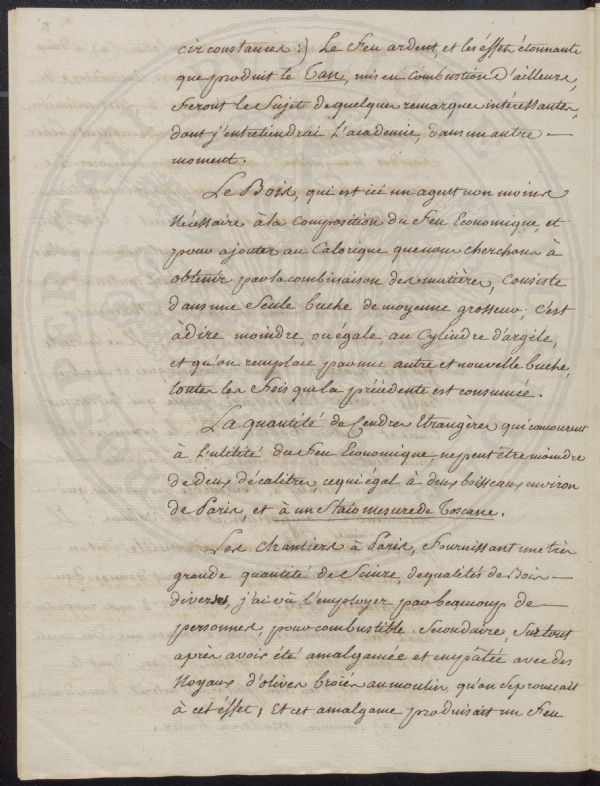 circonstances:) Le Feu ardent, et les éffets étonnants
que produit le Tan, mis en Combustion d'ailleurs,
Feront le Sujet de quelques remarques intéressantes,
dont j'entretiendrai L'academie, dans un autre —
moment.
Le Bois, qui est ici un agent non moins
Nécessaire à la Composition du Feu Economique, et
pour ajouter au Calorique que nous cherchons à
obtenir par la combinaison des matières, Consiste
dans une Seule buche de moyenne grosseur; c'est
à dire moindre, ou égale, au Cylindre d'argile,
et qu'on remplace par une autre et nouvelle buche,
toutes les Fois que la précédente est consumée.
La quantité de Cendres Etrangères qui concourent
à L'utilité du Feu Economique, ne peut être moindre
de deux décalitres, ce qui égal à deux boisseaux environ
de Paris, et à un Staio mesure de Toscane.
Les Chantiers à Paris, Fournissant une très
grande quantité de Sciure, de qualités de Bois —
diverses, j'ai vû l'employer par beaucoup de —
personnes, pour combustible Secondaire, Surtout
après avoir été amalgamée et empâtée avec des
Noyaux d'olives broiés au moulin, qu'on Se procurait
à cet éffet; Et cet amalgame produisait un Feu